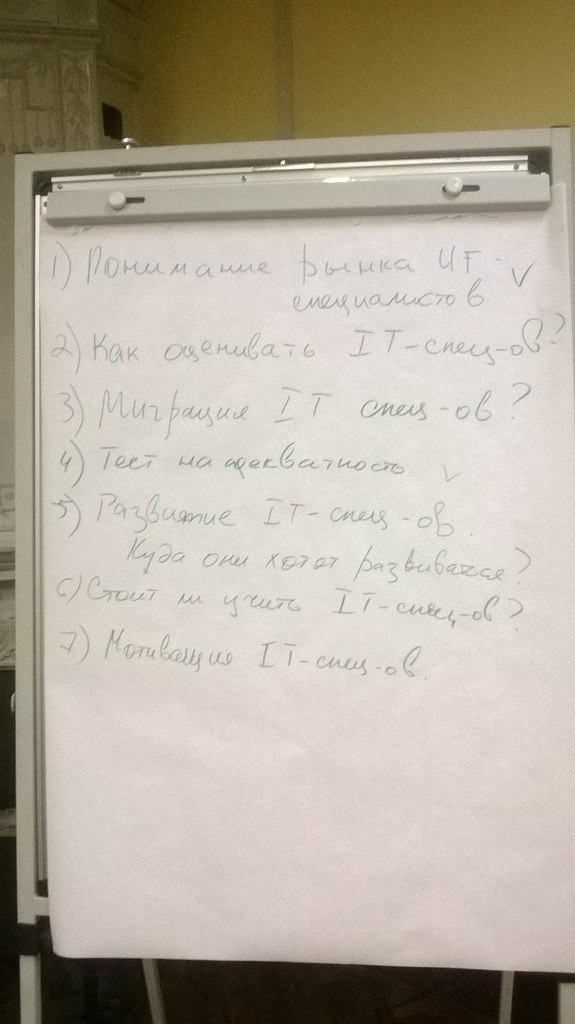 1) Понимание рынка UF
специалистов
2) Как оценивать IT-спец-ов?
3) Миграция IT спец-ов?
4) Тест на адекватность
5) Развитие IT-спец-ов.
Куда они хотят развиваться?
6) Стоит ли учить IT-спец-ов?
7) Мотивация IT-спец-ов.